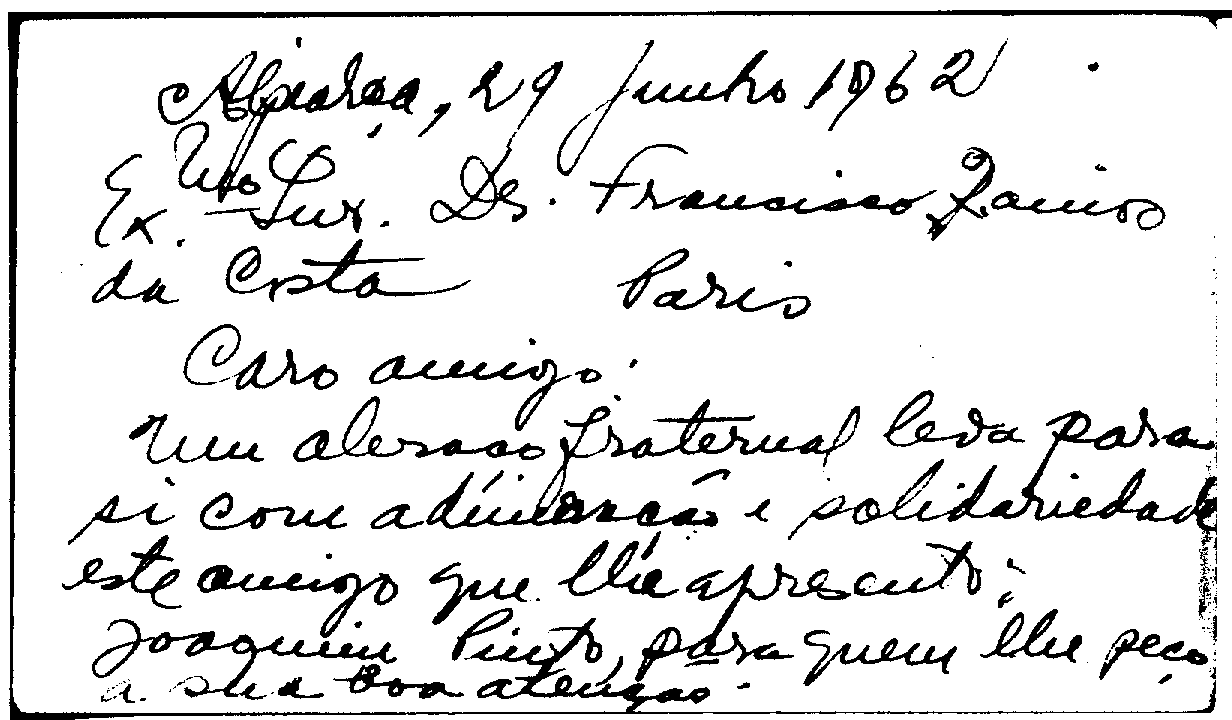 Alpiarça, 29 Junho 1962
Ex.mo Snr. Dr. Francisco Ramos
da Costa Paris
Caro amigo:
Um abraço fraternal leva para
si com admiração e solidariedade
este amigo que lhe apresento;
Joaquim Pinto, para quem lhe peço
a sua boa atenção.